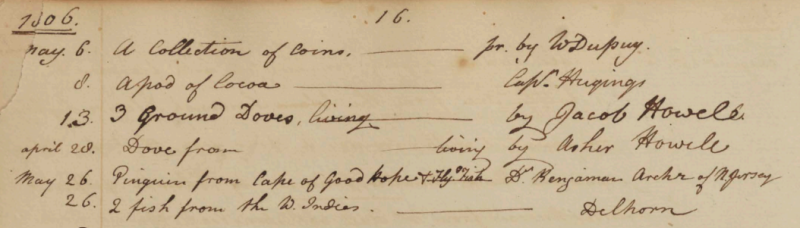 1806. 16.
May. 6. A Collection of Coins. pr. by W Dupuy.
8. A pod of Cocoa Capn. Hugings
13. 3 Ground Doves, living by Jacob Howell
april 28. Dove from living by Asher Howell
May 26. Pinguin from Cape of Good hope & Flyg Fish Dr. Benjaman Archr of N Jersey
26. 2 fish from the W. Indies. Delhorn